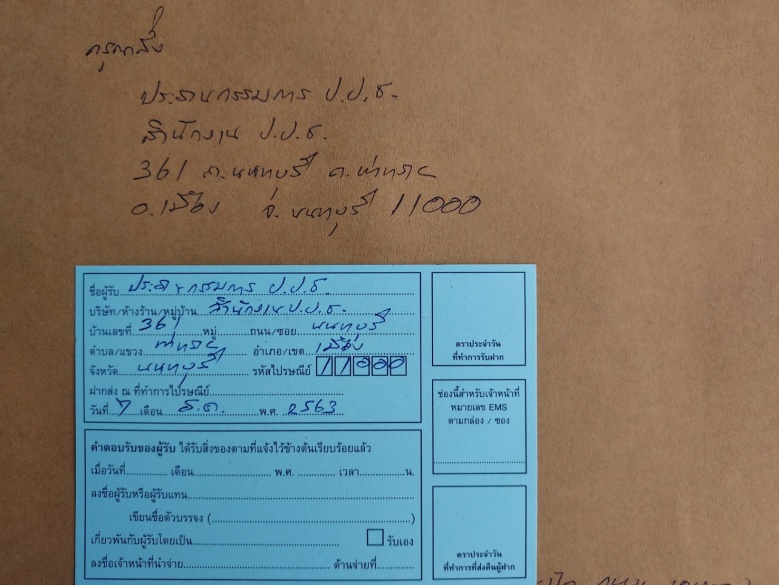 กรุณาส่ง
ประธานกรรมการ ป.ป.ช.
สำนักงาน ป.ป.ช.
361 ถ.นนทบุรี ต.ท่าทราย
อ.เมือง จ.นนทบุรี 11000
ชื่อผู้รับ ประธานกรรมการ ป.ป.ช
บริษัท/ห้างร้าน/หมู่บ้าน สำนักงาน ป.ป.ช.
บ้านเลขที่ 361 หมู่ ถนน/ซอย นนทบุรี
ตำบล/แขวง ท่าทราย อำเภอ/เขต เมือง
จังหวัด นนทบุรี รหัสไปรษณีย์ 11000
ฝากส่ง ณ ที่ทำการไปรษณีย์
วันที่ 7 เดือน ธ.ค. พ.ศ. 2563
คำตอบรับของผู้รับ ได้รับสิ่งของตามที่แจ้งไว้ข้างต้นเรียบร้อยแล้ว
เมื่อวันที่ เดือน พ.ศ. เวลา น.
ลงชื่อผู้รับหรือผู้รับแทน
เขียนชื่อตัวบรรจง ( )
เกี่ยวพันกับผู้รับโดยเป็น รับเอง
ลงชื่อเจ้าหน้าที่นำจ่าย ด้านจ่ายที่
ตราประจำวัน
ที่ทำการรับฝาก
ช่องนี้สำหรับเจ้าหน้าที่
หมายเลข EMS
ตามกล่อง / ซอง
ตราประจำวัน
ที่ทำการที่ส่งคืนผู้ฝาก